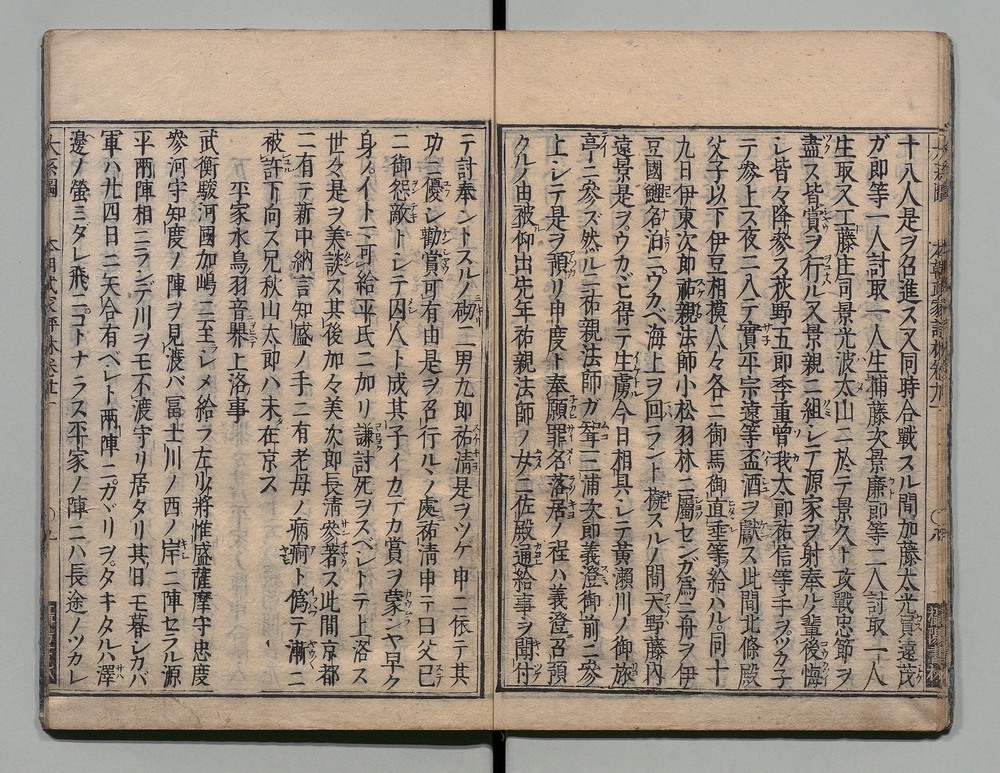 十八人是ヲ召進ス又同時合戰スル間加藤太光員遠茂
ガ郎等一人討取一人生捕藤次景廉郎等二人討取一人
生取又工藤庄司景光波太山ニ於テ景久ト攻戰忠節ヲ
盡ス皆賞ヲ行ル又景親ニ組シテ源家ヲ射奉ル輩後悔
シ皆々降參ス荻野五郎季重曽我太郎祐信等手ヲツカ子
テ參上ス夜ニ入テ實平宗遠等盃酒ヲ獻ス此間北條殿
父子以下伊豆相摸人々各ニ御馬御直垂等給ハル同十
九日伊東次郎祐親法師小松羽林ニ屬センガ爲ニ舟ヲ伊
豆國鯉名泊ニウカベ海上ヲ回ラント擬スルノ間天野藤内
遠景是ヲウカヾヒ得テ生虜今日相具シテ黄瀬川ノ御旅
亭ニ參ズ然ルニ祐親法師ガ聟三浦次郎義澄御前ニ參
上シテ是ヲ預リ申度ト奉願罪名落居ノ程ハ義澄召預
クルノ由被仰出先年祐親法師ノ女ニ佐殿通給事ヲ聞付
テ討奉ントスルノ砌二男九郎祐清是ヲツゲ申ニ依テ其
功ニ優シ勸賞可有由是ヲ召行ルヽノ處祐清申テ曰父已
ニ御怨敵トシテ囚人ト成其子イカデカ賞ヲ蒙ンヤ早ク
身ノイトマ可給平氏ニ加リ謙討死ヲスベシトテ上洛ス
世々是ヲ美談ス其後加々美次郎長清參著ス此間京都
ニ有テ新中納言知盛ノ手ニ有老母ノ病痾ト僞テ漸ニ
被許下向ス兄秋山太郎ハ未在京ス
平家水鳥羽音畏上洛事
武衡駿河國加嶋ニ至ラシメ給ラ左少將惟盛薩摩守忠度
參河守知度ノ陣ヲ見渡バ冨士川ノ西ノ岸ニ陣セラル源
平兩陣相ニランデ川ヲモ不渡守リ居タリ其日モ暮シカバ
軍ハ廿四日ニ矢合有ベシト兩陣ニカヾリヲタキタルハ澤
邊ノ螢ミダレ飛ニコトナラス平家ノ陣ニハ長途ノツカレ